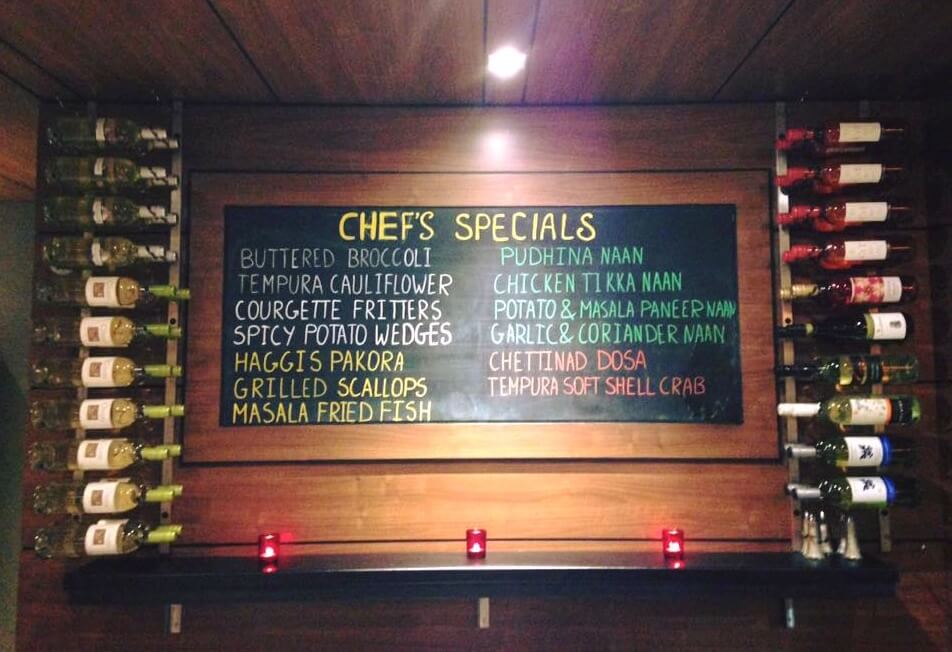 CHEF'S SPECIALS
BUTTERED BROCCOLI
TEMPURA CAULIFLOWER
COURGETTE FRITTERS
SPICY POTATO WEDGES
HAGGIS PAKORA
GRILLED SCALLOPS
MASALA FRIED FISH
PUDHINA NAAN
CHICKEN TIKKA NAAN
POTATO & MASALA PANEER NAAN
GARLIC & CORIANDER NAAN
CHETTINAD DOSA
TEMPURA SOFT SHELL CRAB